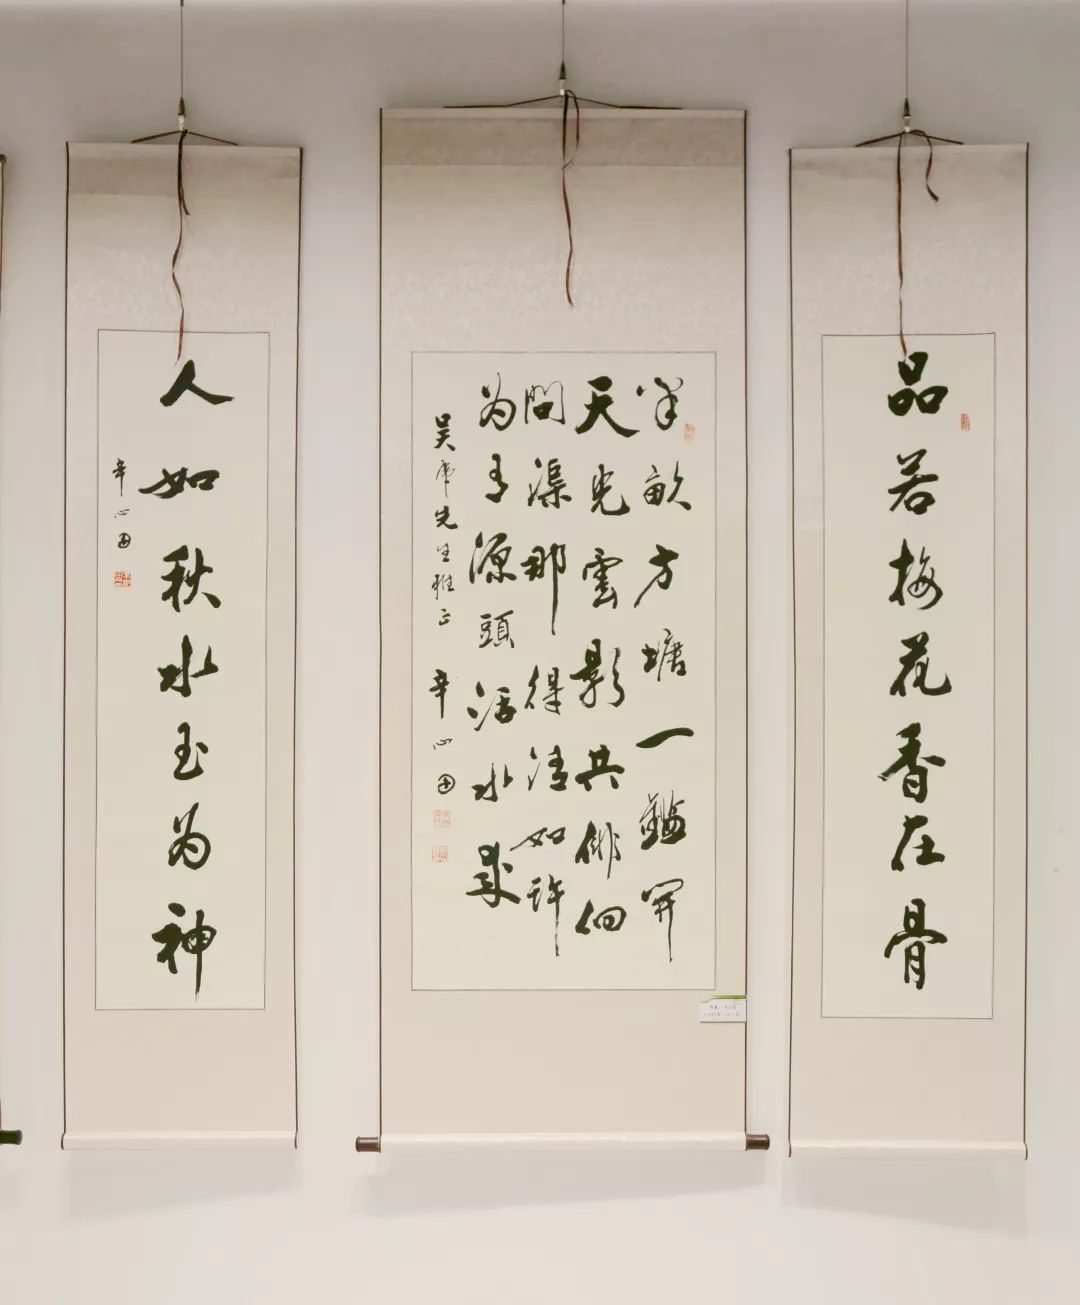 品若梅花香在骨
半畝方塘一鑑開
天光雲影共徘徊
問渠那得清如許
为有源頭活水來
吴先生雅正 辛心田
人如秋水玉为神
辛心田